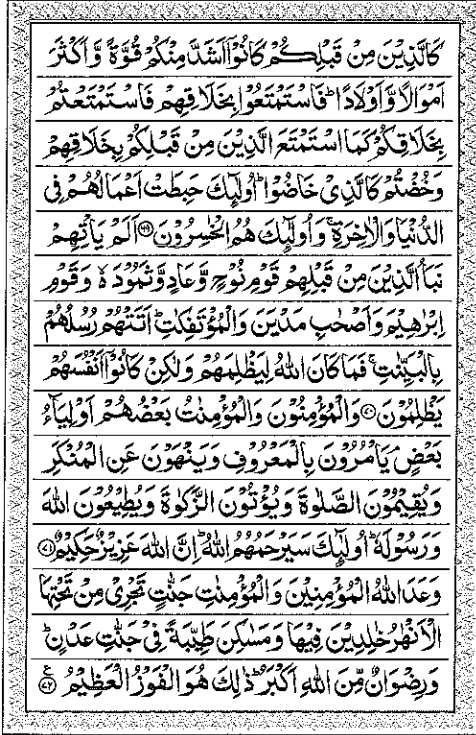 كَالَّذِيْنَ مِنْ قَبْلِكُمْ كَانُوْۤا اَشَدَّ مِنْكُمْ قُوَّةً وَّ اَكْثَرَ
اَمْوَالًا وَّ اَوْلَادًا ؕ فَاسْتَمْتَعُوْا بِخَلَاقِهِمْ فَاسْتَمْتَعْتُمْ
بِخَلَاقِكُمْ كَمَا اسْتَمْتَعَ الَّذِيْنَ مِنْ قَبْلِكُمْ بِخَلَاقِهِمْ
وَخُضْتُمْ كَالَّذِيْ خَاضُوْا ؕ اُولٰٓئِكَ حَبِطَتْ اَعْمَالُهُمْ فِى
الدُّنْيَا وَالْاٰخِرَةِ ۚ وَ اُولٰٓئِكَ هُمُ الْخٰسِرُوْنَ ﴿۶۹﴾ اَلَمْ يَاْتِهِمْ
نَبَاُ الَّذِيْنَ مِنْ قَبْلِهِمْ قَوْمِ نُوْحٍ وَّعَادٍ وَّثَمُوْدَ ۙ وَقَوْمِ
اِبْرٰهِيْمَ وَاَصْحٰبِ مَدْيَنَ وَالْمُؤْتَفِكٰتِ ؕ اَتَتْهُمْ رُسُلُهُمْ
بِالْبَيِّنٰتِ ۚ فَمَا كَانَ اللّٰهُ لِيَظْلِمَهُمْ وَلٰكِنْ كَانُوْۤا اَنْفُسَهُمْ
يَظْلِمُوْنَ ﴿۷۰﴾ وَالْمُؤْمِنُوْنَ وَالْمُؤْمِنٰتُ بَعْضُهُمْ اَوْلِيَآءُ
بَعْضٍ ۘ يَاْمُرُوْنَ بِالْمَعْرُوْفِ وَيَنْهَوْنَ عَنِ الْمُنْكَرِ
وَيُقِيْمُوْنَ الصَّلٰوةَ وَيُؤْتُوْنَ الزَّكٰوةَ وَيُطِيْعُوْنَ اللّٰهَ
وَرَسُوْلَهٗ ؕ اُولٰٓئِكَ سَيَرْحَمُهُمُ اللّٰهُ ؕ اِنَّ اللّٰهَ عَزِيْزٌ حَكِيْمٌ ﴿۷۱﴾
وَعَدَ اللّٰهُ الْمُؤْمِنِيْنَ وَالْمُؤْمِنٰتِ جَنّٰتٍ تَجْرِيْ مِنْ تَحْتِهَا
الْاَنْهٰرُ خٰلِدِيْنَ فِيْهَا وَمَسٰكِنَ طَيِّبَةً فِيْ جَنّٰتِ عَدْنٍ ؕ
وَرِضْوَانٌ مِّنَ اللّٰهِ اَكْبَرُ ؕ ذٰلِكَ هُوَ الْفَوْزُ الْعَظِيْمُ ﴿۷۲﴾ ع